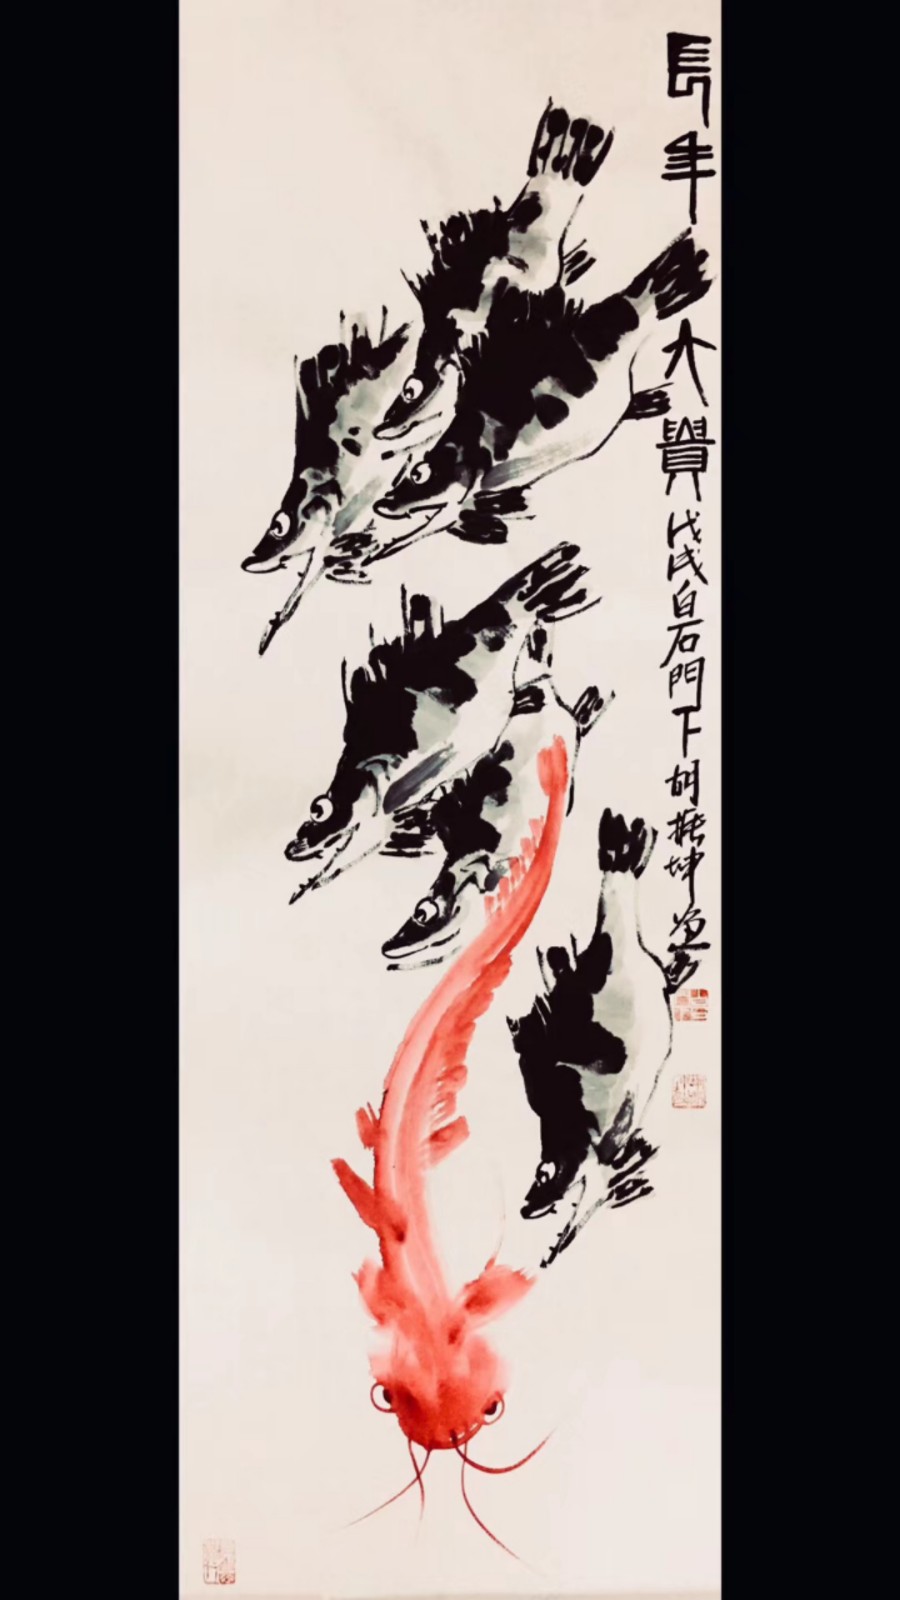 長年大貴戊戌白石門下胡振坤